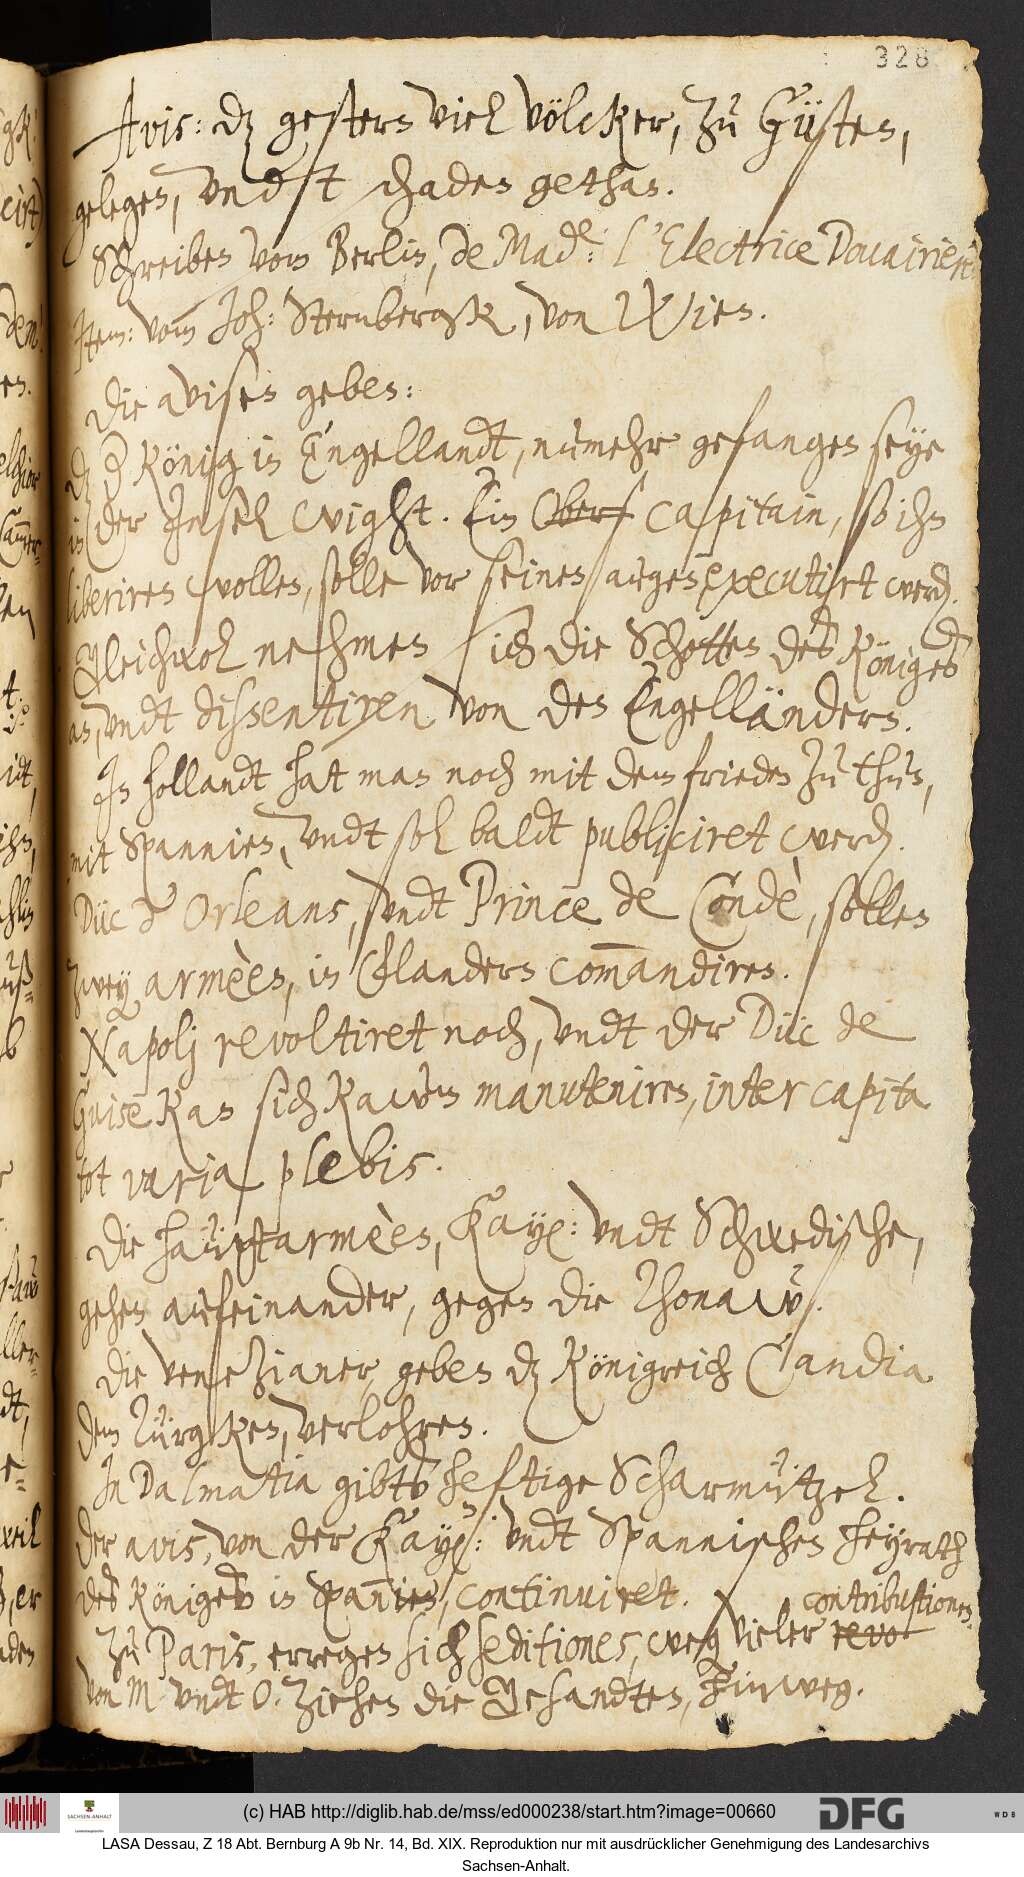 328
Avis: dz gestern viel völcker, zu Güsten,
gelegen, vndt schaden gethan.
Schreiben von Berlin, de Mad.e: l'Electrice Douairiere
Item: vom Joh: Sternbergk, von Wien.
Die avisen geben:
dz der König in Engellandt, numehr gefangen seye
in der Insel Wight. Ein Oberst Capitain, so ihn
liberiren wollen, solle vor seinen augen executirt werden.
Gleichwol nehmen sich die Schotten des Königes
an, vndt dissentiren von den Engelländern.
In Hollandt hat man noch mit dem frieden zu thun,
mit Spannien, vndt sol baldt publiciret werden.
Düc d'Orleans, vndt Prince de Condè, sollen
zwey armèen, in Flandern com̄andiren.
Napolj revoltiret noch, vndt der Düc de
Guise kan sich kawm manuteniren, inter capita
tot varia plebis.
Die haüptarmèen, Kayß: vndt Schwedische,
gehen aufeinander, gegen die Thonaw.
Die venezianer, geben dz Königreich Candia
dem Türgken, verlohren.
In Dalmatia gibts heftige Scharmützel.
Der avis, von der Kayß: vndt Spannischen heyrath
des Königes in Span̄ien, continuiret.
contributionen.
Zu Paris, erregen sich seditiones, weg vieler revo
von M. vndt O. ziehen die Gesandten, hinweg.
(c) HAB http://diglib.hab.de/mss/ed000238/start.htm?image=00660
SACHSEN-ANHALT
DFG
WDB
LASA Dessau, Z 18 Abt. Bernburg A 9b Nr. 14, Bd. XIX. Reproduktion nur mit ausdrücklicher Genehmigung des Landesarchivs
Sachsen-Anhalt.